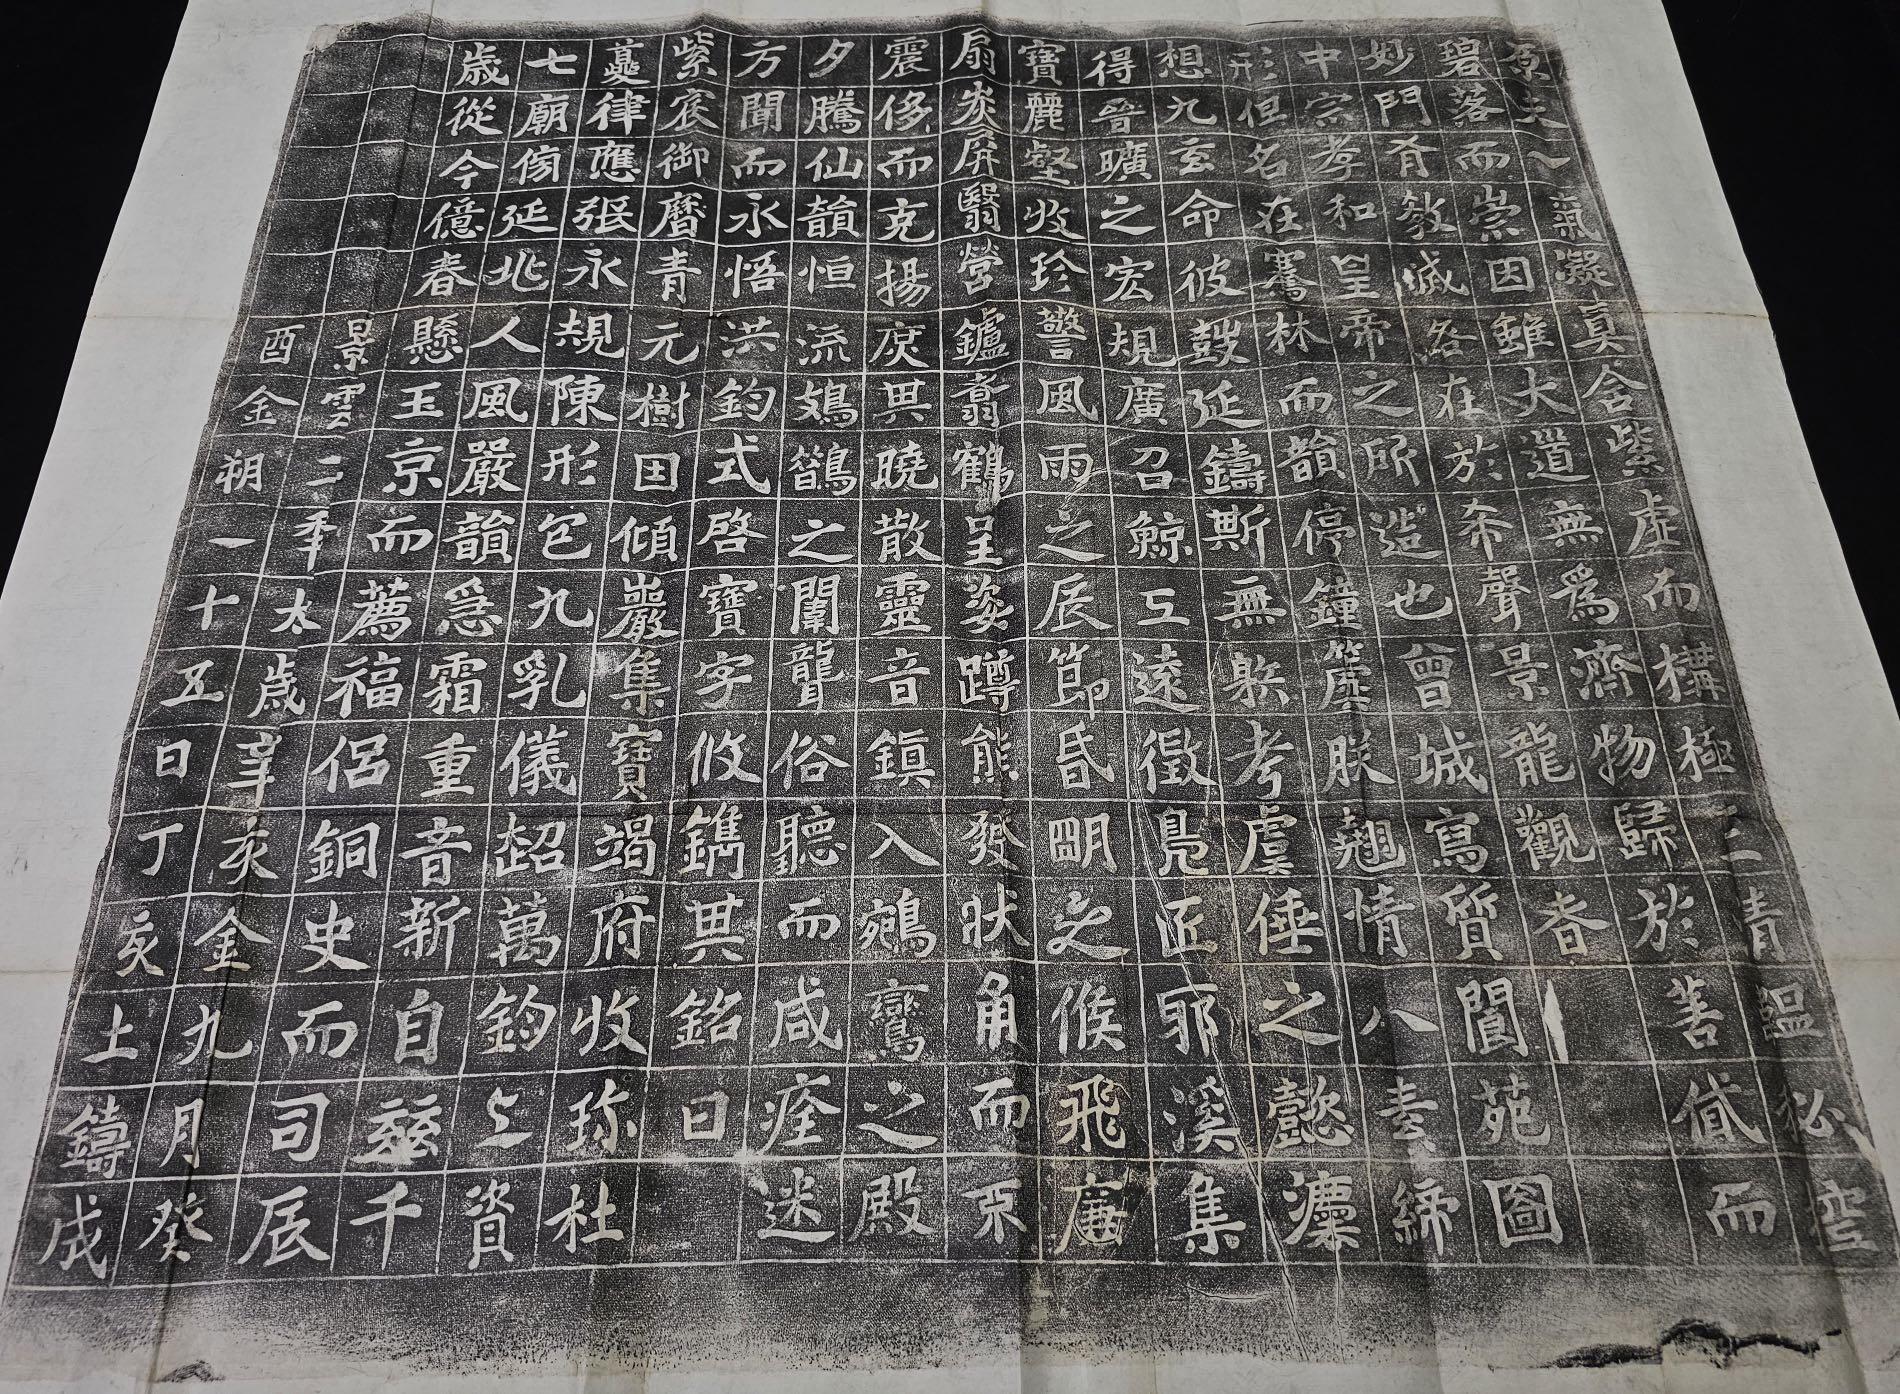 原夫一氣凝真含紫虛而構極三清韞秘空
碧落而崇因雖大道無爲濟物歸於善貸而
妙門有教滅咎在於希聲景龍觀者
中宗孝和皇帝之所造也曾城寫質閬苑圖
形但名在騫林而韻停鐘虡朕翹情八素締
想九玄命彼鼓延鑄斯無躲考虞倕之懿灋
得晉曠之宏規廣召鯨工遠徵鳧匠耶溪集
寶麗壑收珍警風雨之辰節昏明之候飛廉
扇炭屏翳營鑪翥鶴呈姿蹲熊發狀角而不
震侈而克揚庶其曉散靈音鎮入鵷鸞之殿
夕騰仙韻恒流鳷鵲之闈聳俗聽而咸痊迷
方聞而永悟洪鈞式啓寶字攸鐫其銘曰
紫宸御曆青元樹因傾巖集寶竭府收珎杜
夔律應張永規陳形包九乳儀超萬鈞上資
七廟傍延兆人風嚴韻急霜重音新自茲千
歲從今億春懸玉京而薦福侶銅史而司辰
景雲二年太歲辛亥金九月癸
酉金朔一十五日丁亥土鑄成